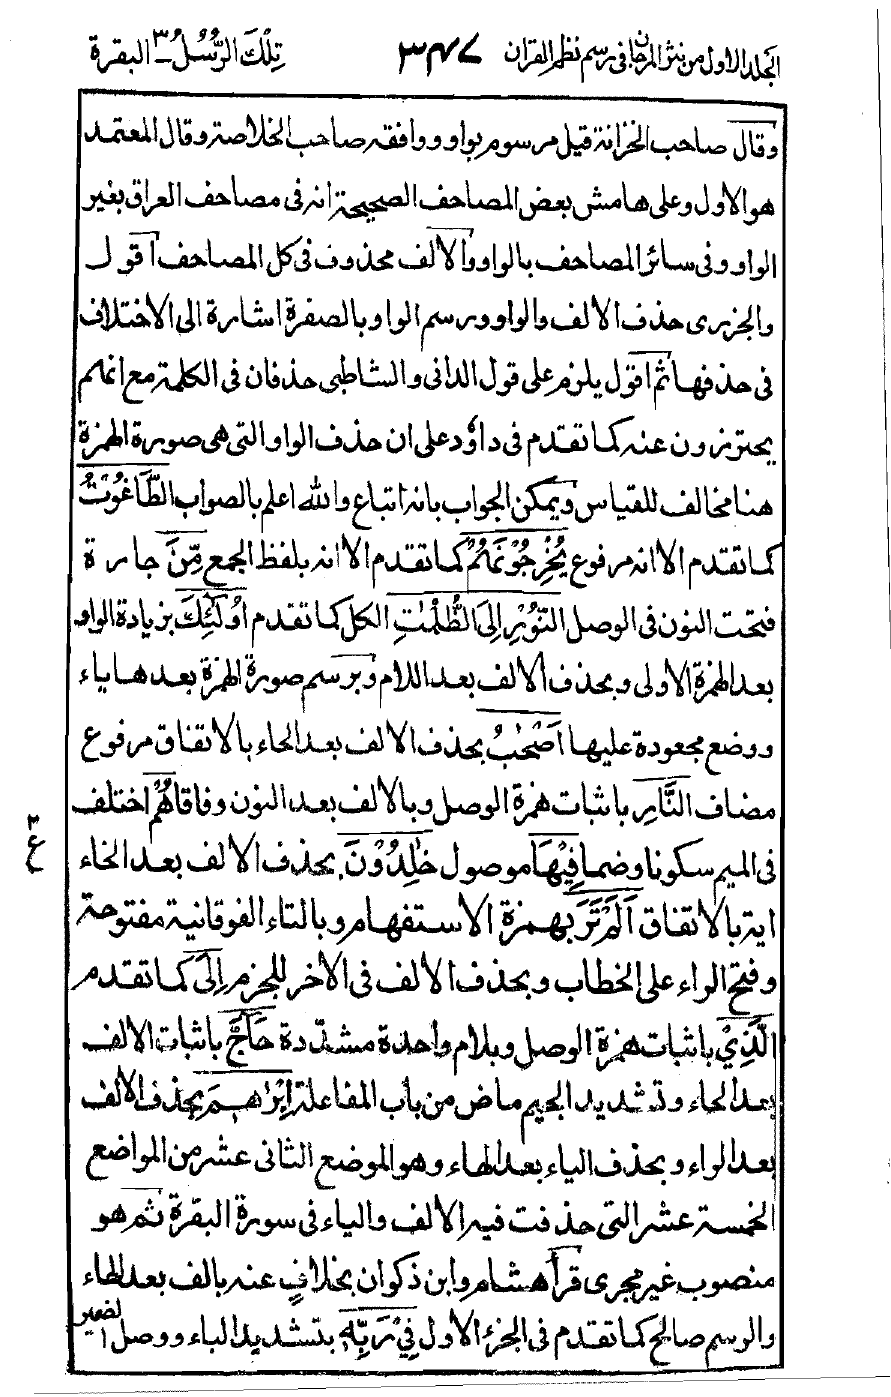 الجلد الاول من نثر المرجان فی رسم نظم القران ٣٤٧ تِلْكَ الرُّسُلُ ٣ البقرة
وقال صاحب الخزانة قيل مرسوم بواو ووافقه صاحب الخلاصة وقال المعتمد
هو الاول وعلى هامش بعض المصاحف الصحيحة انه فى مصاحف العراق بغير
الواو وفى سائر المصاحف بالواو والالف محذوف فى كل المصاحف اقول
والجزرى حذف الالف والواو ورسم الواو بالصفرة اشارة الى الاختلاف
فى حذفها ثم اقول يلزم على قول الدانى والشاطبى حذفان فى الكلمة مع انهم
يحترزون عنه كما تقدم فى داوٗد على ان حذف الواو التى هى صورة الهمزة
هنا مخالف للقياس ويمكن الجواب بانه اتباع والله اعلم بالصواب الطَّاغُوْتُ
كما تقدم الا انه مرفوع يُخْرِجُوْنَهُمْ كما تقدم الا انه بلفظ الجمع مِّنَ جارة
فتحت النون فى الوصل النُّوْرِ اِلَى الظُّلُمٰتِ الكل كما تقدم اُولٰٓئِكَ بزيادة الواو
بعد الهمزة الاولى وبحذف الالف بعد اللام وبرسم صورة الهمزة بعدها ياء
ووضع مجعودة عليها اَصْحٰبُ بحذف الالف بعد الحاء بالاتفاق مرفوع
مضاف النَّارِ باثبات همزة الوصل وبالالف بعد النون وفاقا هُمْ اختلف
فى الميم سكونا وضما فِيْهَا موصول خٰلِدُوْنَ بحذف الالف بعد الخاء
اية بالاتفاق اَلَمْ تَرَ بهمزة الاستفهام وبالتاء الفوقانية مفتوحة
وفتح الراء على الخطاب وبحذف الالف فى الاخر للجزم اِلَى كما تقدم
الَّذِيْ باثبات همزة الوصل وبلام واحدة مشدّدة حَآجَّ باثبات الالف
بعد الحاء وتشديد الجيم ماض من باب المفاعلة اِبْرٰهٖمَ بحذف الالف
بعد الراء وبحذف الياء بعد الهاء وهو الموضع الثانى عشر من المواضع
الخمسة عشر التى حذفت فيه الالف والياء فى سورة البقرة ثم هو
منصوب غير مجرى قرأ هشام وابن ذكوان بخلافٍ عنه بالف بعد الهاء
والرسم صالح كما تقدم فى الجزء الاول فِيْ رَبِّهٖ بتشديد الباء ووصل الضمير
٣
ع